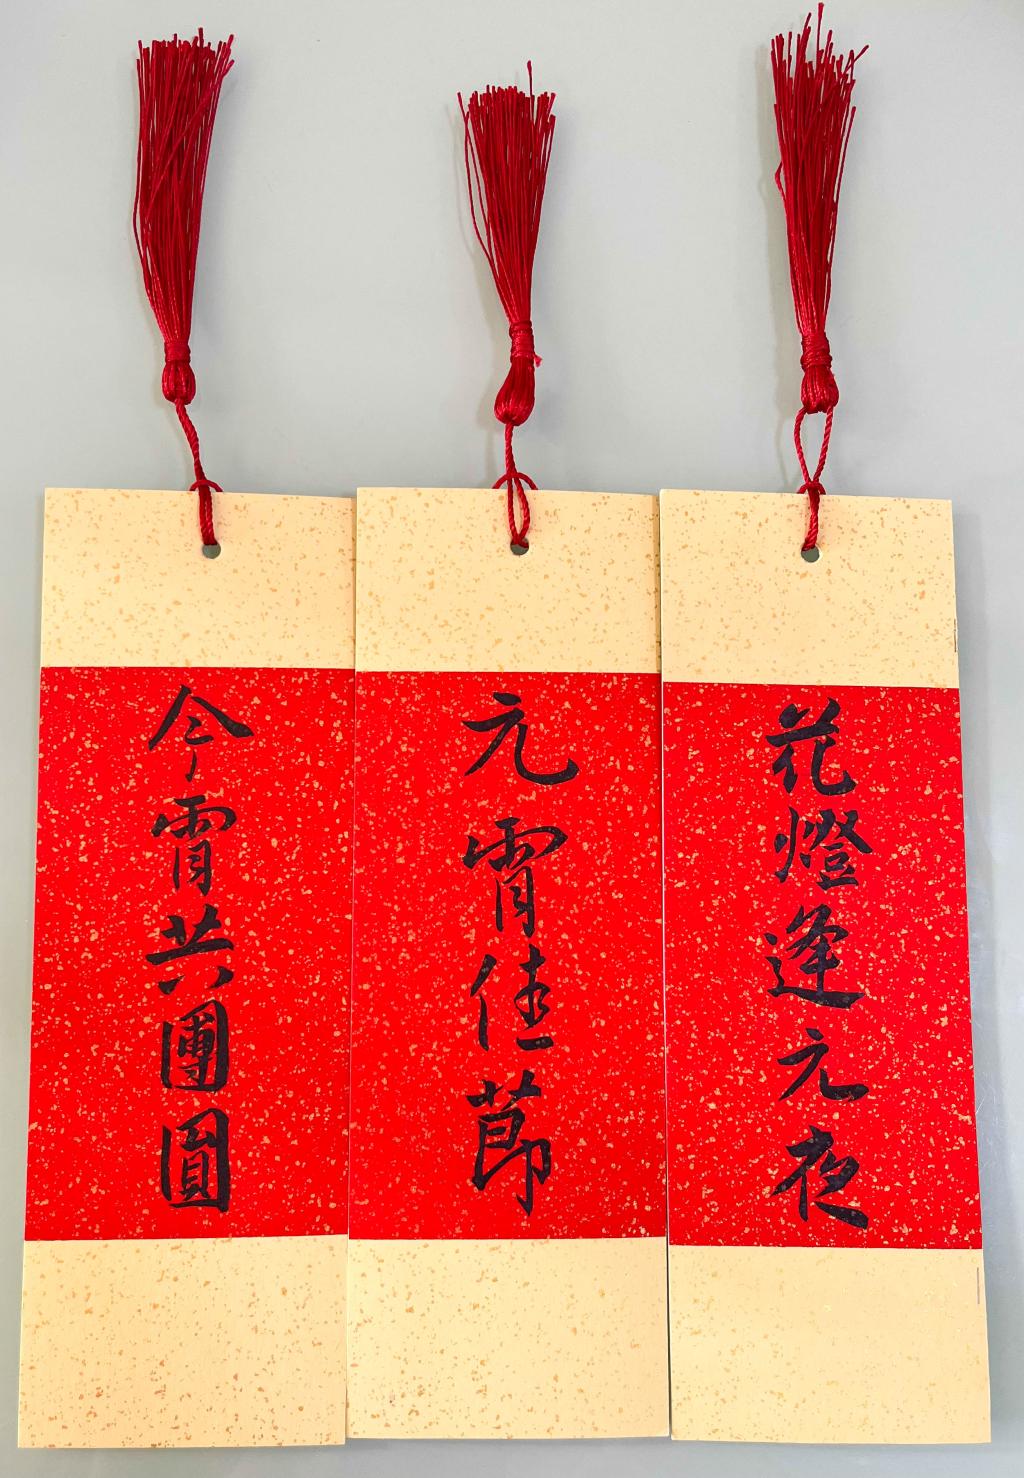 花燈逢元夜
元宵佳節
今宵共團圓